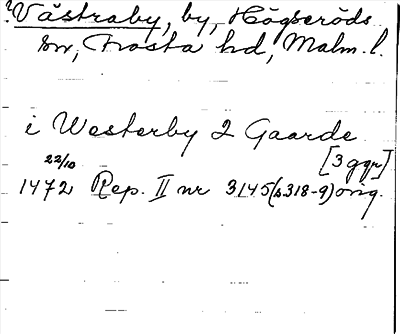 ?Västraby, by, Högseröds
sn, Frosta hd, Malm. l.
i Westerby 2 Gaarde
[3 ggr]
22/10
1472 Rep. II nr 3145 (s 318-9) orig.